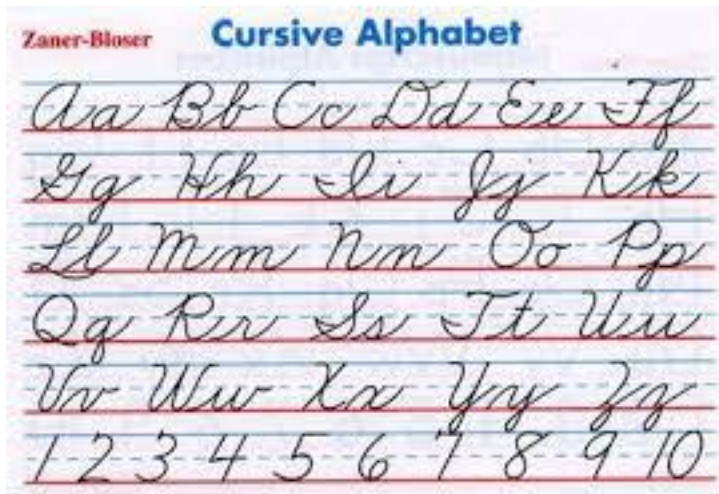 Zaner-Bloser Cursive Alphabet
Aa Bb Cc Dd Ee Ff
Gg Hh Ii Jj Kk
Ll Mm Nn Oo Pp
Qq Rr Ss Tt Uu
Vv Ww Xx Yy Zz
1 2 3 4 5 6 7 8 9 10